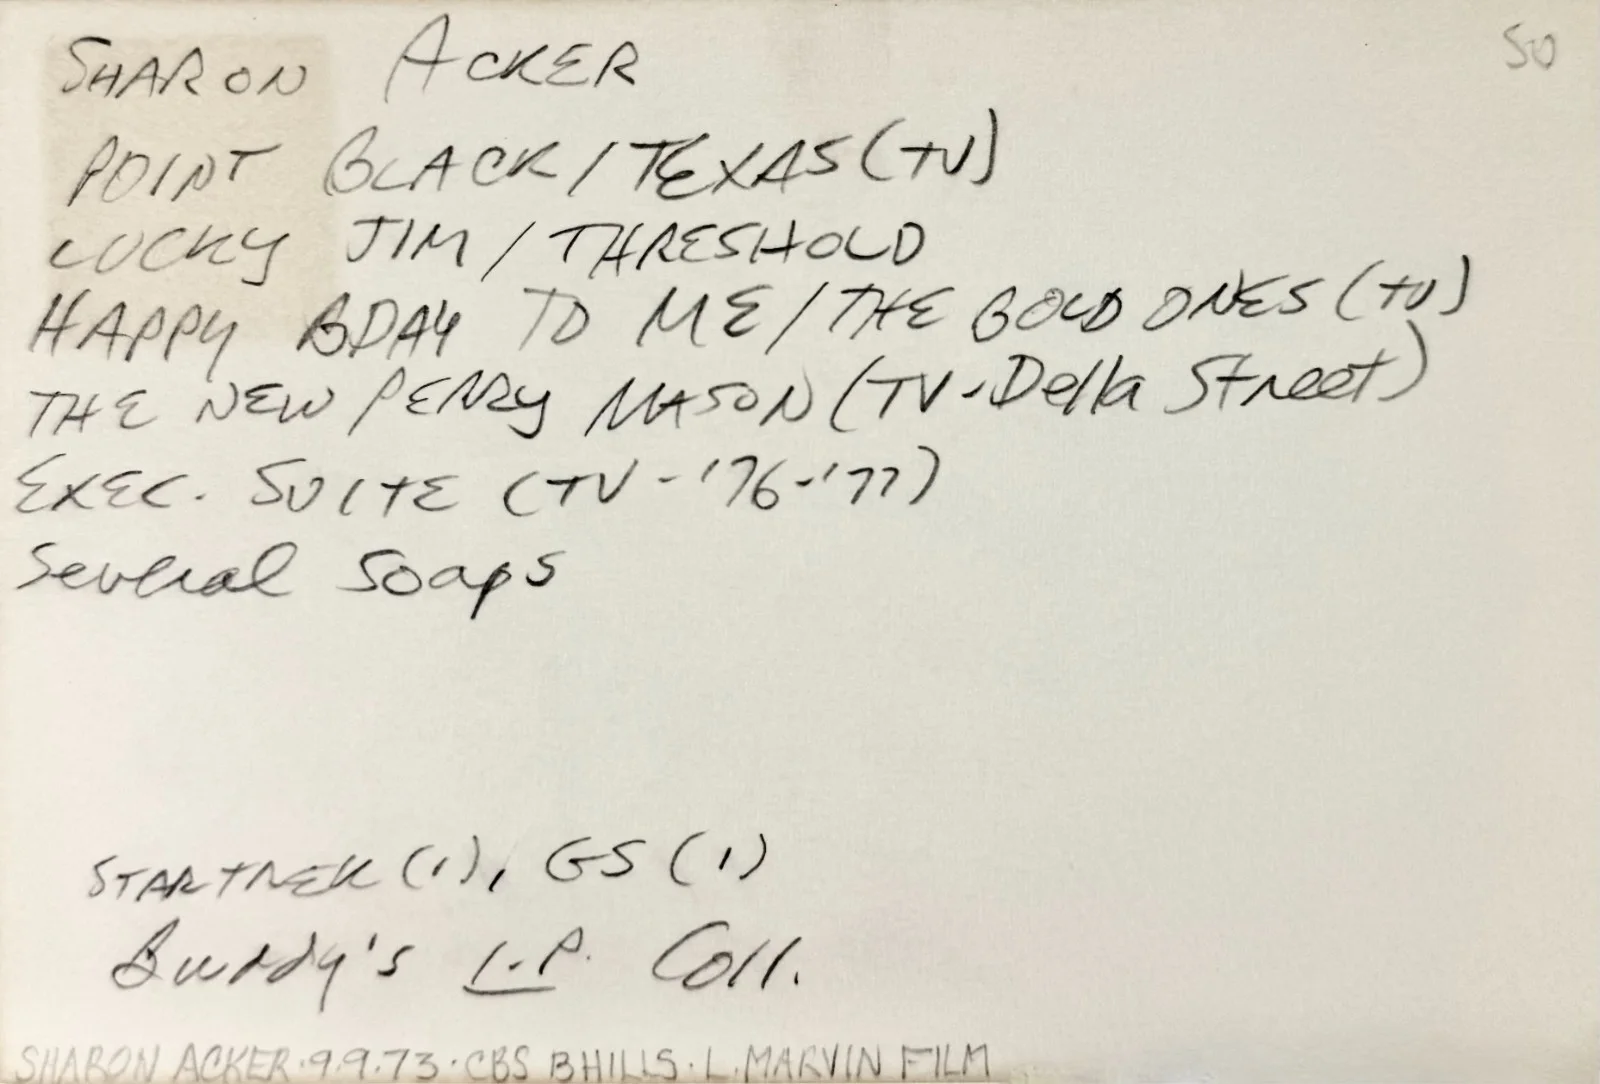 50
SHARON ACKER
POINT BLACK / TEXAS (TV)
LUCKY JIM / THRESHOLD
HAPPY BDAY TO ME / THE BOLD ONES (TV)
THE NEW PERRY MASON (TV - Della Street)
EXEC. SUITE (TV - '76 - '77)
Several Soaps
STAR TREK (1), GS (1)
Buddy's I.P. Coll.
SHARON ACKER · 9.9.73 · CBS BHILLS · L. MARVIN FILM